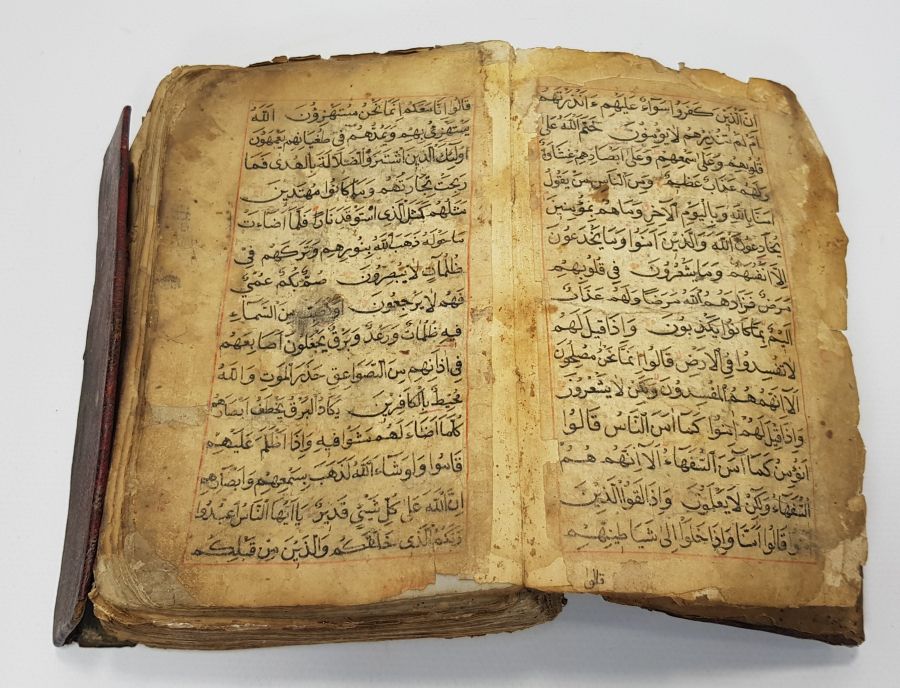 ان الذين كفروا سواء عليهم ءانذرتهم
ام لم تنذرهم لا يؤمنون ختم الله على
قلوبهم وعلى سمعهم وعلى ابصارهم غشاوة
ولهم عذاب عظيم ومن الناس من يقول
امنا بالله وباليوم الاخر وما هم بمؤمنين
يخادعون الله والذين آمنوا وما يخدعون
الا انفسهم وما يشعرون في قلوبهم
مرض فزادهم الله مرضا ولهم عذاب
اليم بما كانوا يكذبون واذا قيل لهم
لا تفسدوا في الارض قالوا انما نحن مصلحون
الا انهم هم المفسدون ولكن لا يشعرون
واذا قيل لهم امنوا كما امن الناس قالوا
انؤمن كما آمن السفهاء الا انهم هم
السفهاء ولكن لا يعلمون واذا لقوا الذين
قالوا امنا واذا خلوا الى شياطينهم
قالوا
قالوا انا معكم انما نحن مستهزؤن الله
يستهزئ بهم ويمدهم في طغيانهم يعمهون
اولئك الذين اشتروا الضلالة بالهدى فما
ربحت تجارتهم وما كانوا مهتدين
مثلهم كمثل الذي استوقد نارا فلما اضاءت
ما حوله ذهب الله بنورهم وتركهم في
ظلمات لا يبصرون صم بكم عمي
فهم لا يرجعون من السماء
فيه ظلمات ورعد وبرق يجعلون اصابعهم
في اذانهم من الصواعق حذر الموت والله
محيط بالكافرين يكاد البرق يخطف ابصارهم
كلما اضاء لهم مشوا فيه واذا اظلم عليهم
قاموا ولو شاء الله لذهب بسمعهم وابصارهم
ان الله على كل شيئ قدير يا ايها الناس اعبدوا
ربكم الذي خلقكم والذين من قبلكم